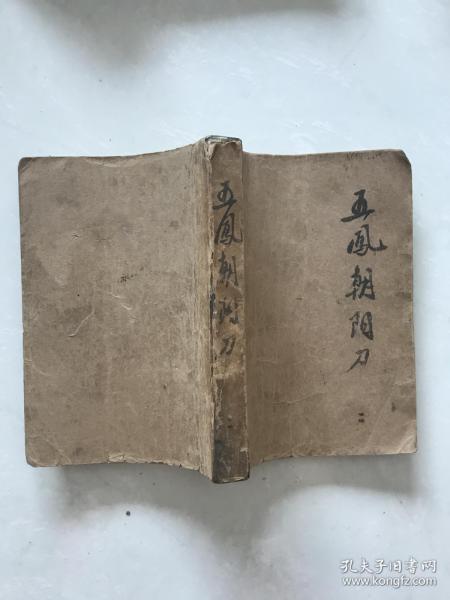 五鳳朝陽刀
五鳳朝陽刀
孔夫子旧书网
www.kongfz.com